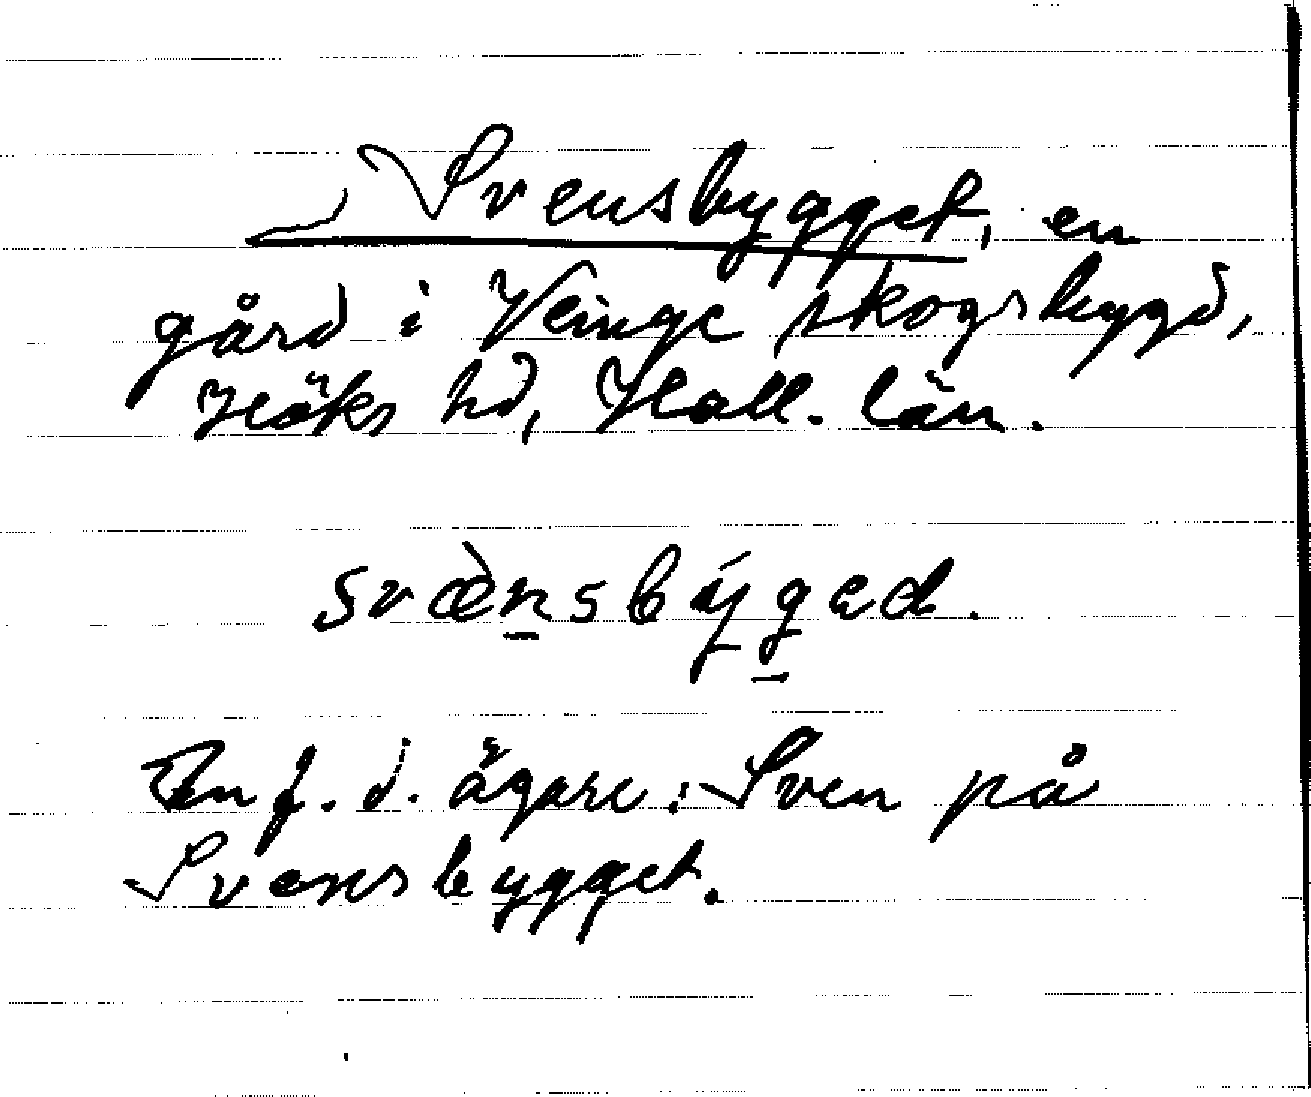 Svensbygget, en
gård i Veinge skogsbygd,
Höks hd, Hall. län.
svæ̀nsbýged.
En f.d. ägare: Sven på
Svensbygget.